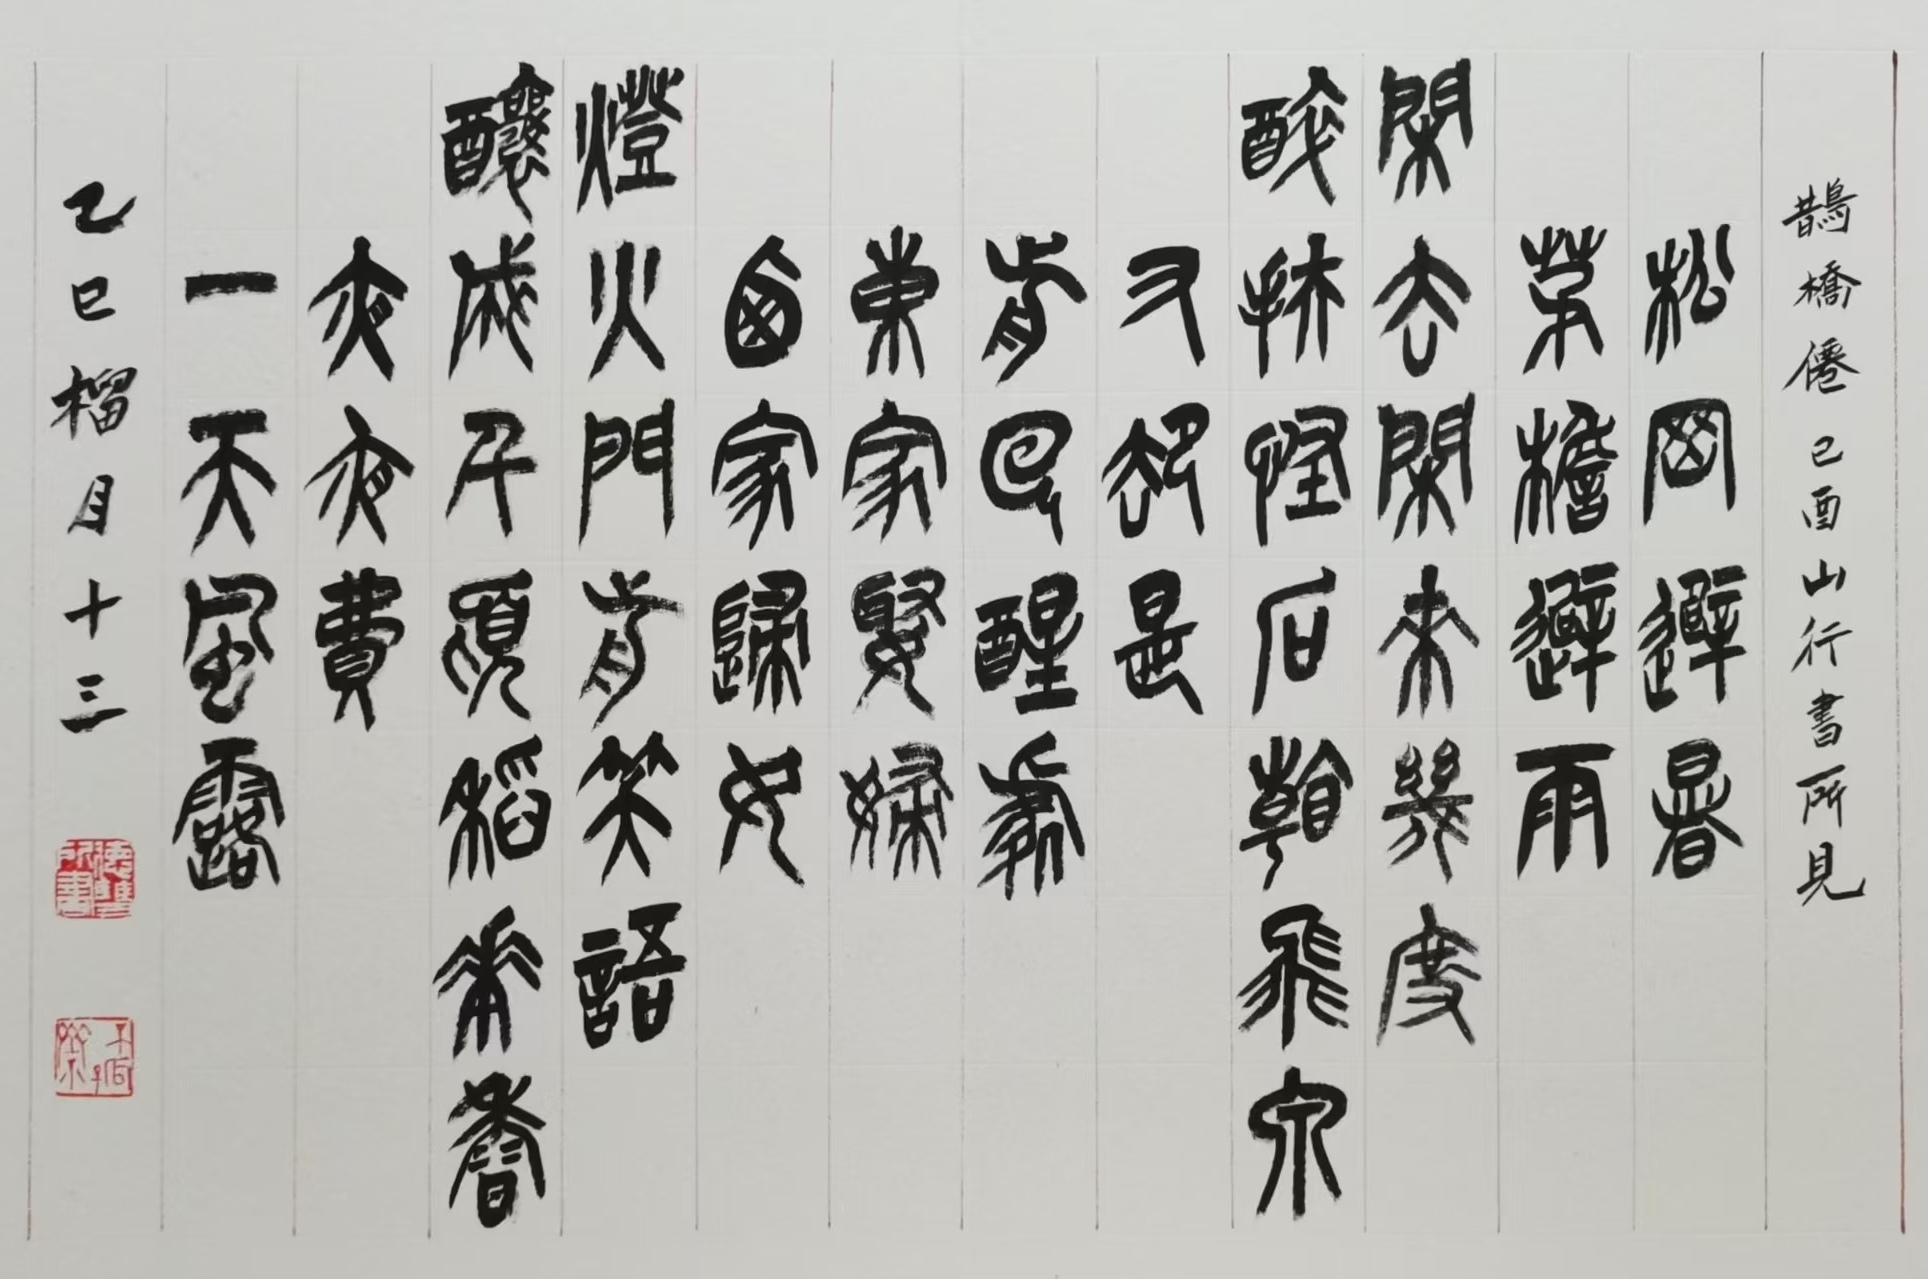 鵲橋僊 己酉山行書所見
松岡避暑
茅檐避雨
閑去閑來幾度
醉扶怪石看飛泉
又卻是
前回醒處
東家娶婦
西家歸女
燈火門前笑語
釀成千頃稻花香
夜夜費
一天風露
乙巳榴月十三